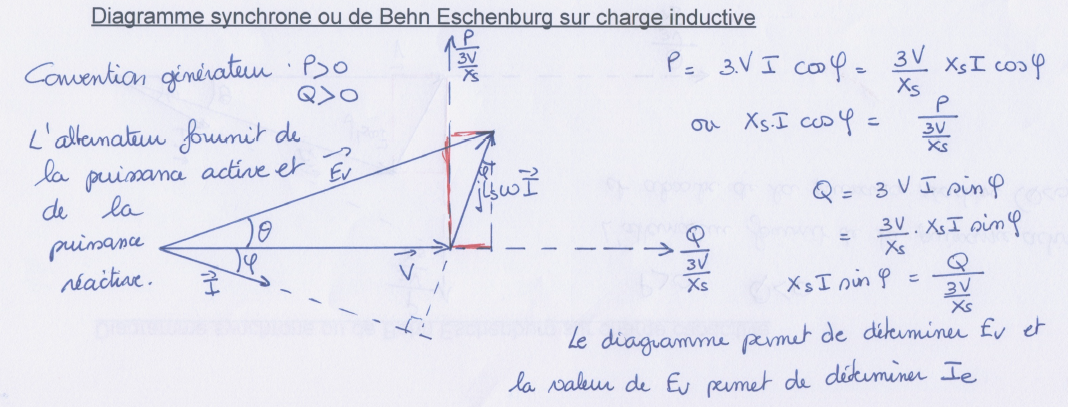 Diagramme synchrone ou de Behn Eschenburg sur charge inductive
Convention générateur : P>0
Q>0
L'alternateur fournit de
la puissance active et
de la
puissance
réactive.
P
3V
Xs
Ev
φ
jLsωI
θ
φ
I
V
Q
3V
Xs
P = 3.V I cosφ = 3V/Xs XsI cosφ
ou Xs.I cosφ = P/(3V/Xs)
Q = 3 V I sinφ
= 3V/Xs . XsI sinφ
XsI sinφ = Q/(3V/Xs)
Le diagramme permet de déterminer Ev et
la valeur de Ev permet de déterminer Ie